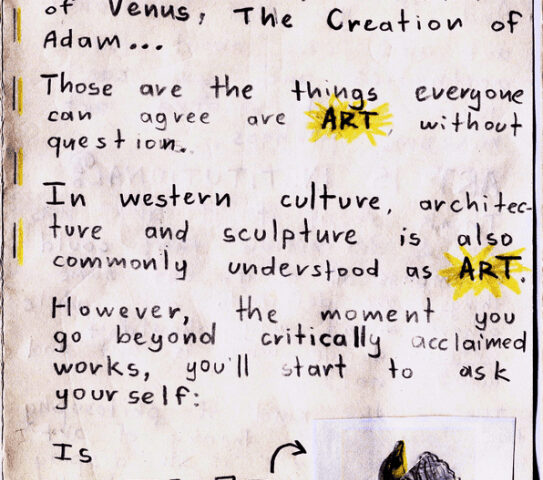 of Venus, The Creation of
Adam...
Those are the things everyone
can agree are ART, without
question.
In western culture, architec-
ture and sculpture is also
commonly understood as ART.
However, the moment you
go beyond critically acclaimed
works, you'll start to ask
your self:
Is